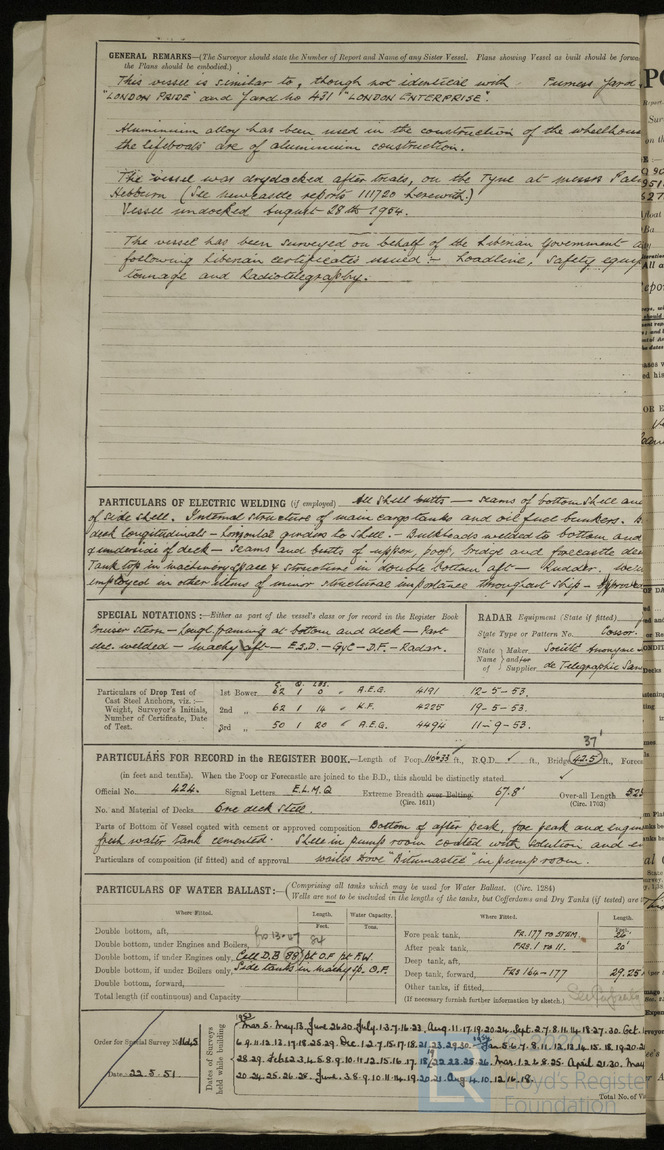 GENERAL REMARKS—(The Surveyor should state the Number of Report and Name of any Sister Vessel. Plans showing Vessel as built should be forwa
the Plans should be embodied.)
This vessel is similar to, though not identical with Furness Yard
"LONDON PRIDE" and Yard No 431 "LONDON ENTERPRISE".
Aluminium alloy has been used in the construction of the wheelhous
the lifeboats are of aluminium construction.
The vessel was drydocked after trials, on the Tyne at Messrs Pal
Hebburn (See Newcastle reports 111720 herewith.)
Vessel undocked August 28th 1954.
The vessel has been surveyed on behalf of the Liberian Government a
following Liberian certificates issued :- Loadline, Safety equip
tonnage and Radiotelegraphy.
PARTICULARS OF ELECTRIC WELDING (if employed) All shell butts — seams of bottom shell and
of side shell. Internal structure of main cargo tanks and oil fuel bunkers.
deck longitudinals — horizontal girders to shell. — Bulkheads welded to bottom and
& underside of deck — seams and butts of upper, poop, bridge and forecastle de
Tank top in machinery space & structure in double bottom aft — Rudder.
employed in other items of minor structural importance throughout ship — Approved
SPECIAL NOTATIONS :—Either as part of the vessel's class or for record in the Register Book
Cruiser stern — Longl framing at bottom and deck — Part
elec. welded — machy aft — E.S.D. — GyC — D.F. — Radar.
RADAR Equipment (State if fitted)
State Type or Pattern No. Cossor.
State Name of Maker and/or Supplier Société Anonyme
de Telegraphie San
Particulars of Drop Test of Cast Steel Anchors, viz. :— Weight, Surveyor's Initials, Number of Certificate, Date of Test.
C. Q. LBS.
1st Bower 62 1 0 " A.E.G. 4191 12-5-53.
2nd " 62 1 14 " K.F. 4225 19-5-53.
3rd " 50 1 20 " A.E.G. 4494 11-9-53.
37'
PARTICULARS FOR RECORD in the REGISTER BOOK.—Length of Poop 116.33 ft., R.Q.D. ✓ ft., Bridge 42.5 ft., Forecas
(in feet and tenths). When the Poop or Forecastle are joined to the B.D., this should be distinctly stated. ✓
Official No. 424. Signal Letters E.L.M.Q Extreme Breadth over Belting 67.8' Over-all Length 525
(Circ. 1611) (Circ. 1703)
No. and Material of Decks One deck steel.
Parts of Bottom of Vessel coated with cement or approved composition Bottom of after peak, fore peak and engin
fresh water tank cemented. Shell in pump room coated with solution and e
Particulars of composition (if fitted) and of approval Wailes Dove "Bitumastic" in pump room.
PARTICULARS OF WATER BALLAST:—(Comprising all tanks which may be used for Water Ballast. (Circ. 1284)
Wells are not to be included in the lengths of the tanks, but Cofferdams and Dry Tanks (if tested) are
Where Fitted. Length. Feet. Water Capacity. Tons.
Double bottom, aft,
Double bottom, under Engines and Boilers, 13-67 84
Double bottom, if under Engines only, Cell D.B (58') pt O.F pt F.W.
Double bottom, if under Boilers only, Side tanks in machy sp. O.F.
Double bottom, forward,
Total length (if continuous) and Capacity
Where Fitted. Length.
Fore peak tank, FR. 177 TO STEM
After peak tank, FRS. 1 TO 11. 20'
Deep tank, aft,
Deep tank, forward, FRS 164-177 29.25
Other tanks, if fitted,
(If necessary furnish further information by sketch.)
Order for Special Survey No. 1645
Date 22.5.51
Dates of Surveys held while building
1953
Mar 5. May 13. June 26.30. July 1.3.7.16.23. Aug. 11.17.19.20.24. Sept. 2.7.8.11.14.18.27.30. Oct.
6.9.11.12.13.17.18.25.29. Dec. 1.2.7.15.17.18.21.23.29.30. Jan 5.6.7.8.11.12.14.15.18.19.20.2
28.29. Feb 1.2.3.4.5.8.9.10.11.12.15.16.17.18.19.22.23.25.26. Mar. 1.2.4.8.25. April 21.30. May
20.24.25.26.28. June. 3.8.9.10.11.14.19.20.21. Aug 4.10.12.16.18.
Total No. of V
Lloyd's Register
Foundation